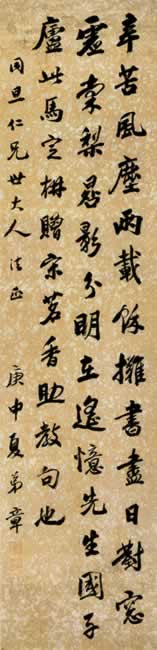 辛苦風塵兩載餘擁書盡日對窓
虛棠梨晷影分明在遙憶先生國子
廬此馬定栟贈宗茗香助教句也
同旦仁兄世大人法正
庚申夏弟章